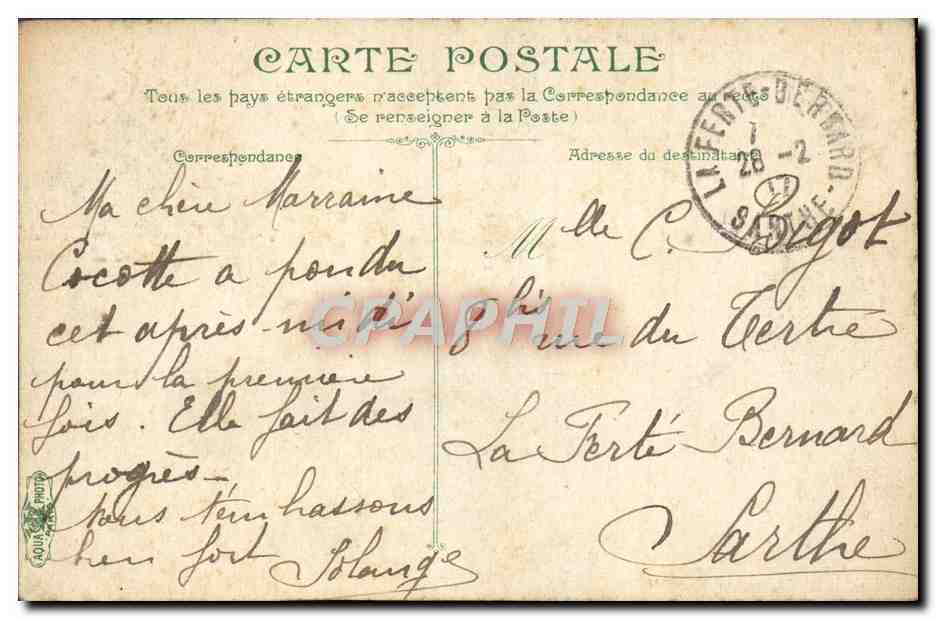 CARTE POSTALE
Tous les pays étrangers n'acceptent pas la Correspondance au recto
(Se renseigner à la Poste)
Correspondance
Ma chère Marraine
Cocotte a pondu
cet après midi
pour la premiere
fois. Elle fait des
progrès_
Nous t'embrassons
bien fort
Solange
Adresse du destinataire
Mlle C. Bigot
8 bis rue du Tertre
La Ferté Bernard
Sarthe
LA FERTE-BERNARD
28 -2
11
SARTHE
AQUA PHOTO
PARIS
CPAPHIL